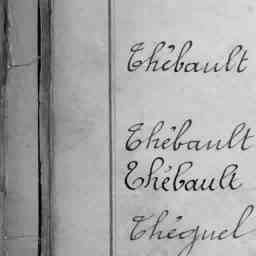 Thébault
Thébault
Thébault
Théguel